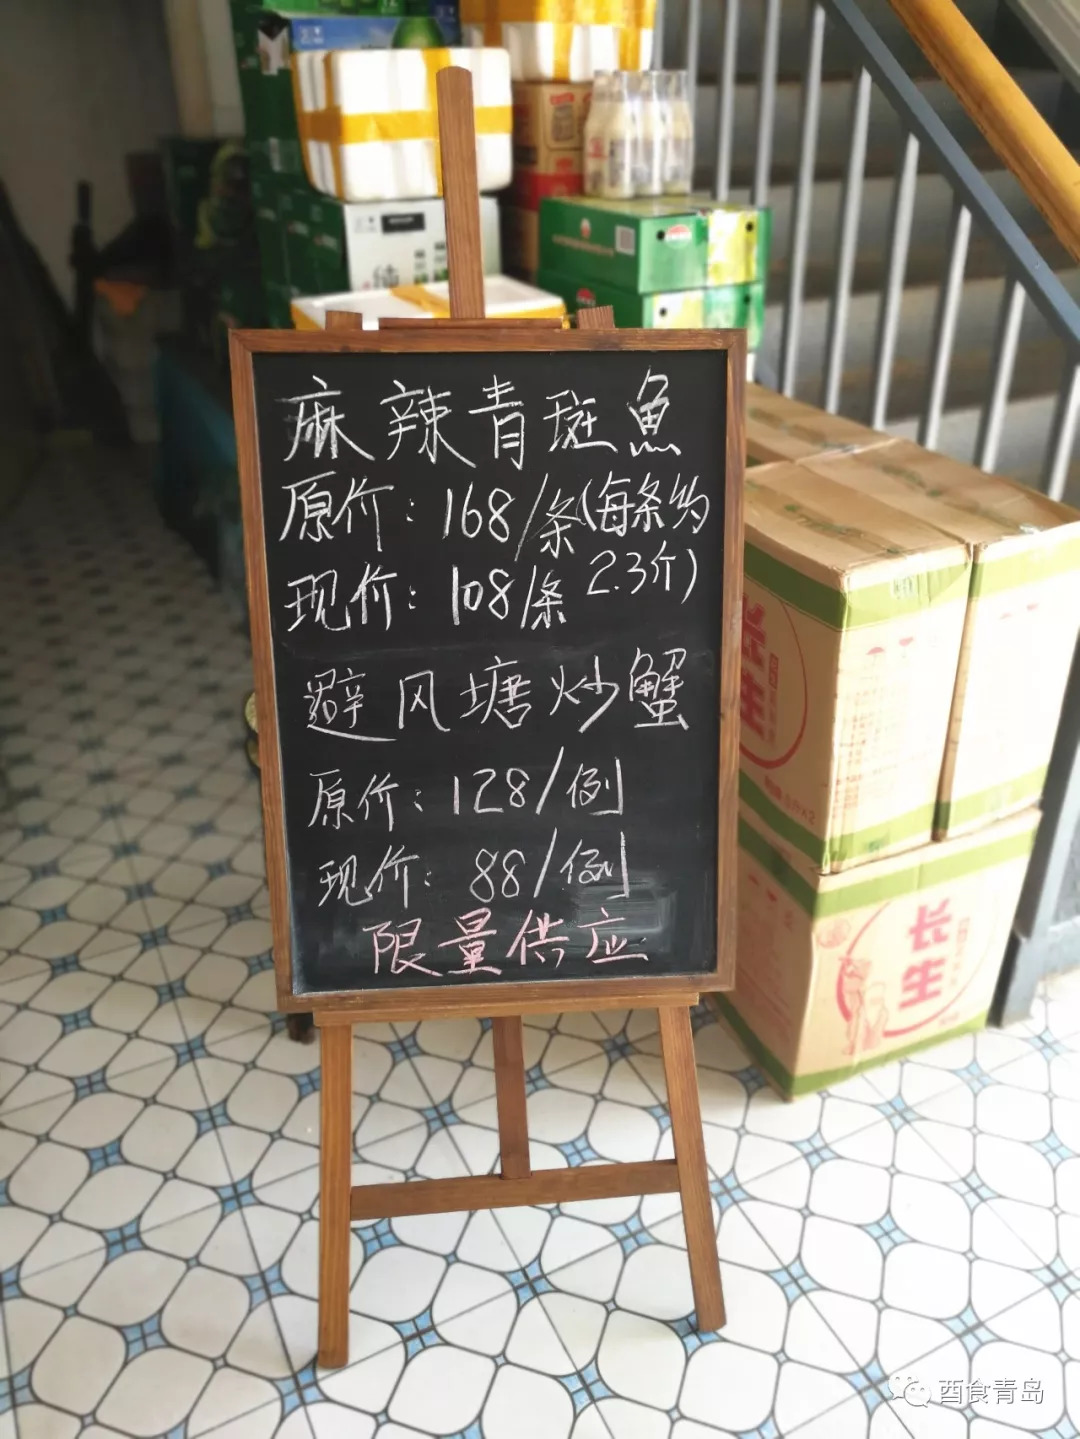 麻辣青斑魚
原价：168/条(每条约
2.3斤)
现价：108/条
避风塘炒蟹
原价：128/例
现价：88/例
限量供应
长生
长生
酉食青岛